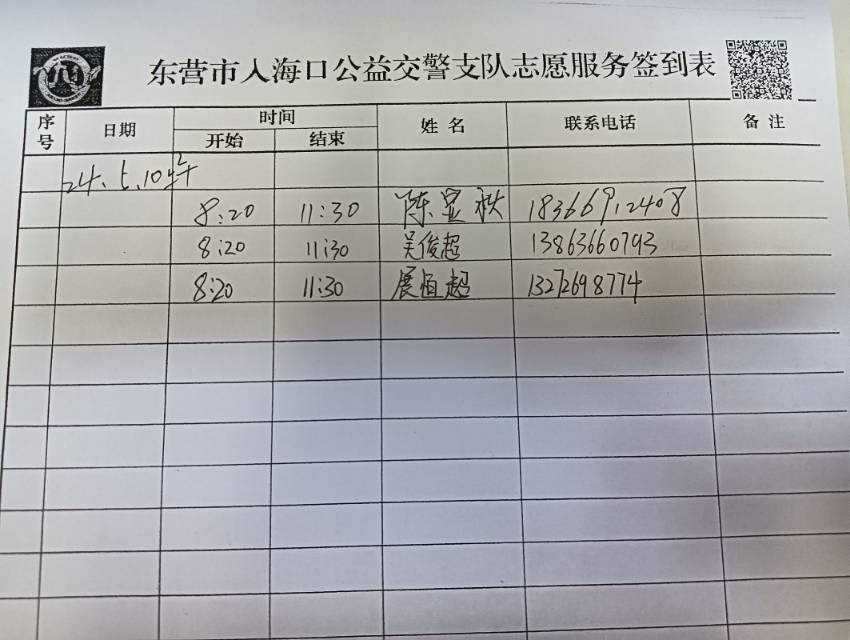 东营市入海口公益交警支队志愿服务签到表
序号 日期 时间 姓名 联系电话 备注
开始 结束
24.5.10
8:20 11:30 陈显秋 18366912408
8:20 11:30 吴俊超 13863660793
8:20 11:30 展恒超 13272698774